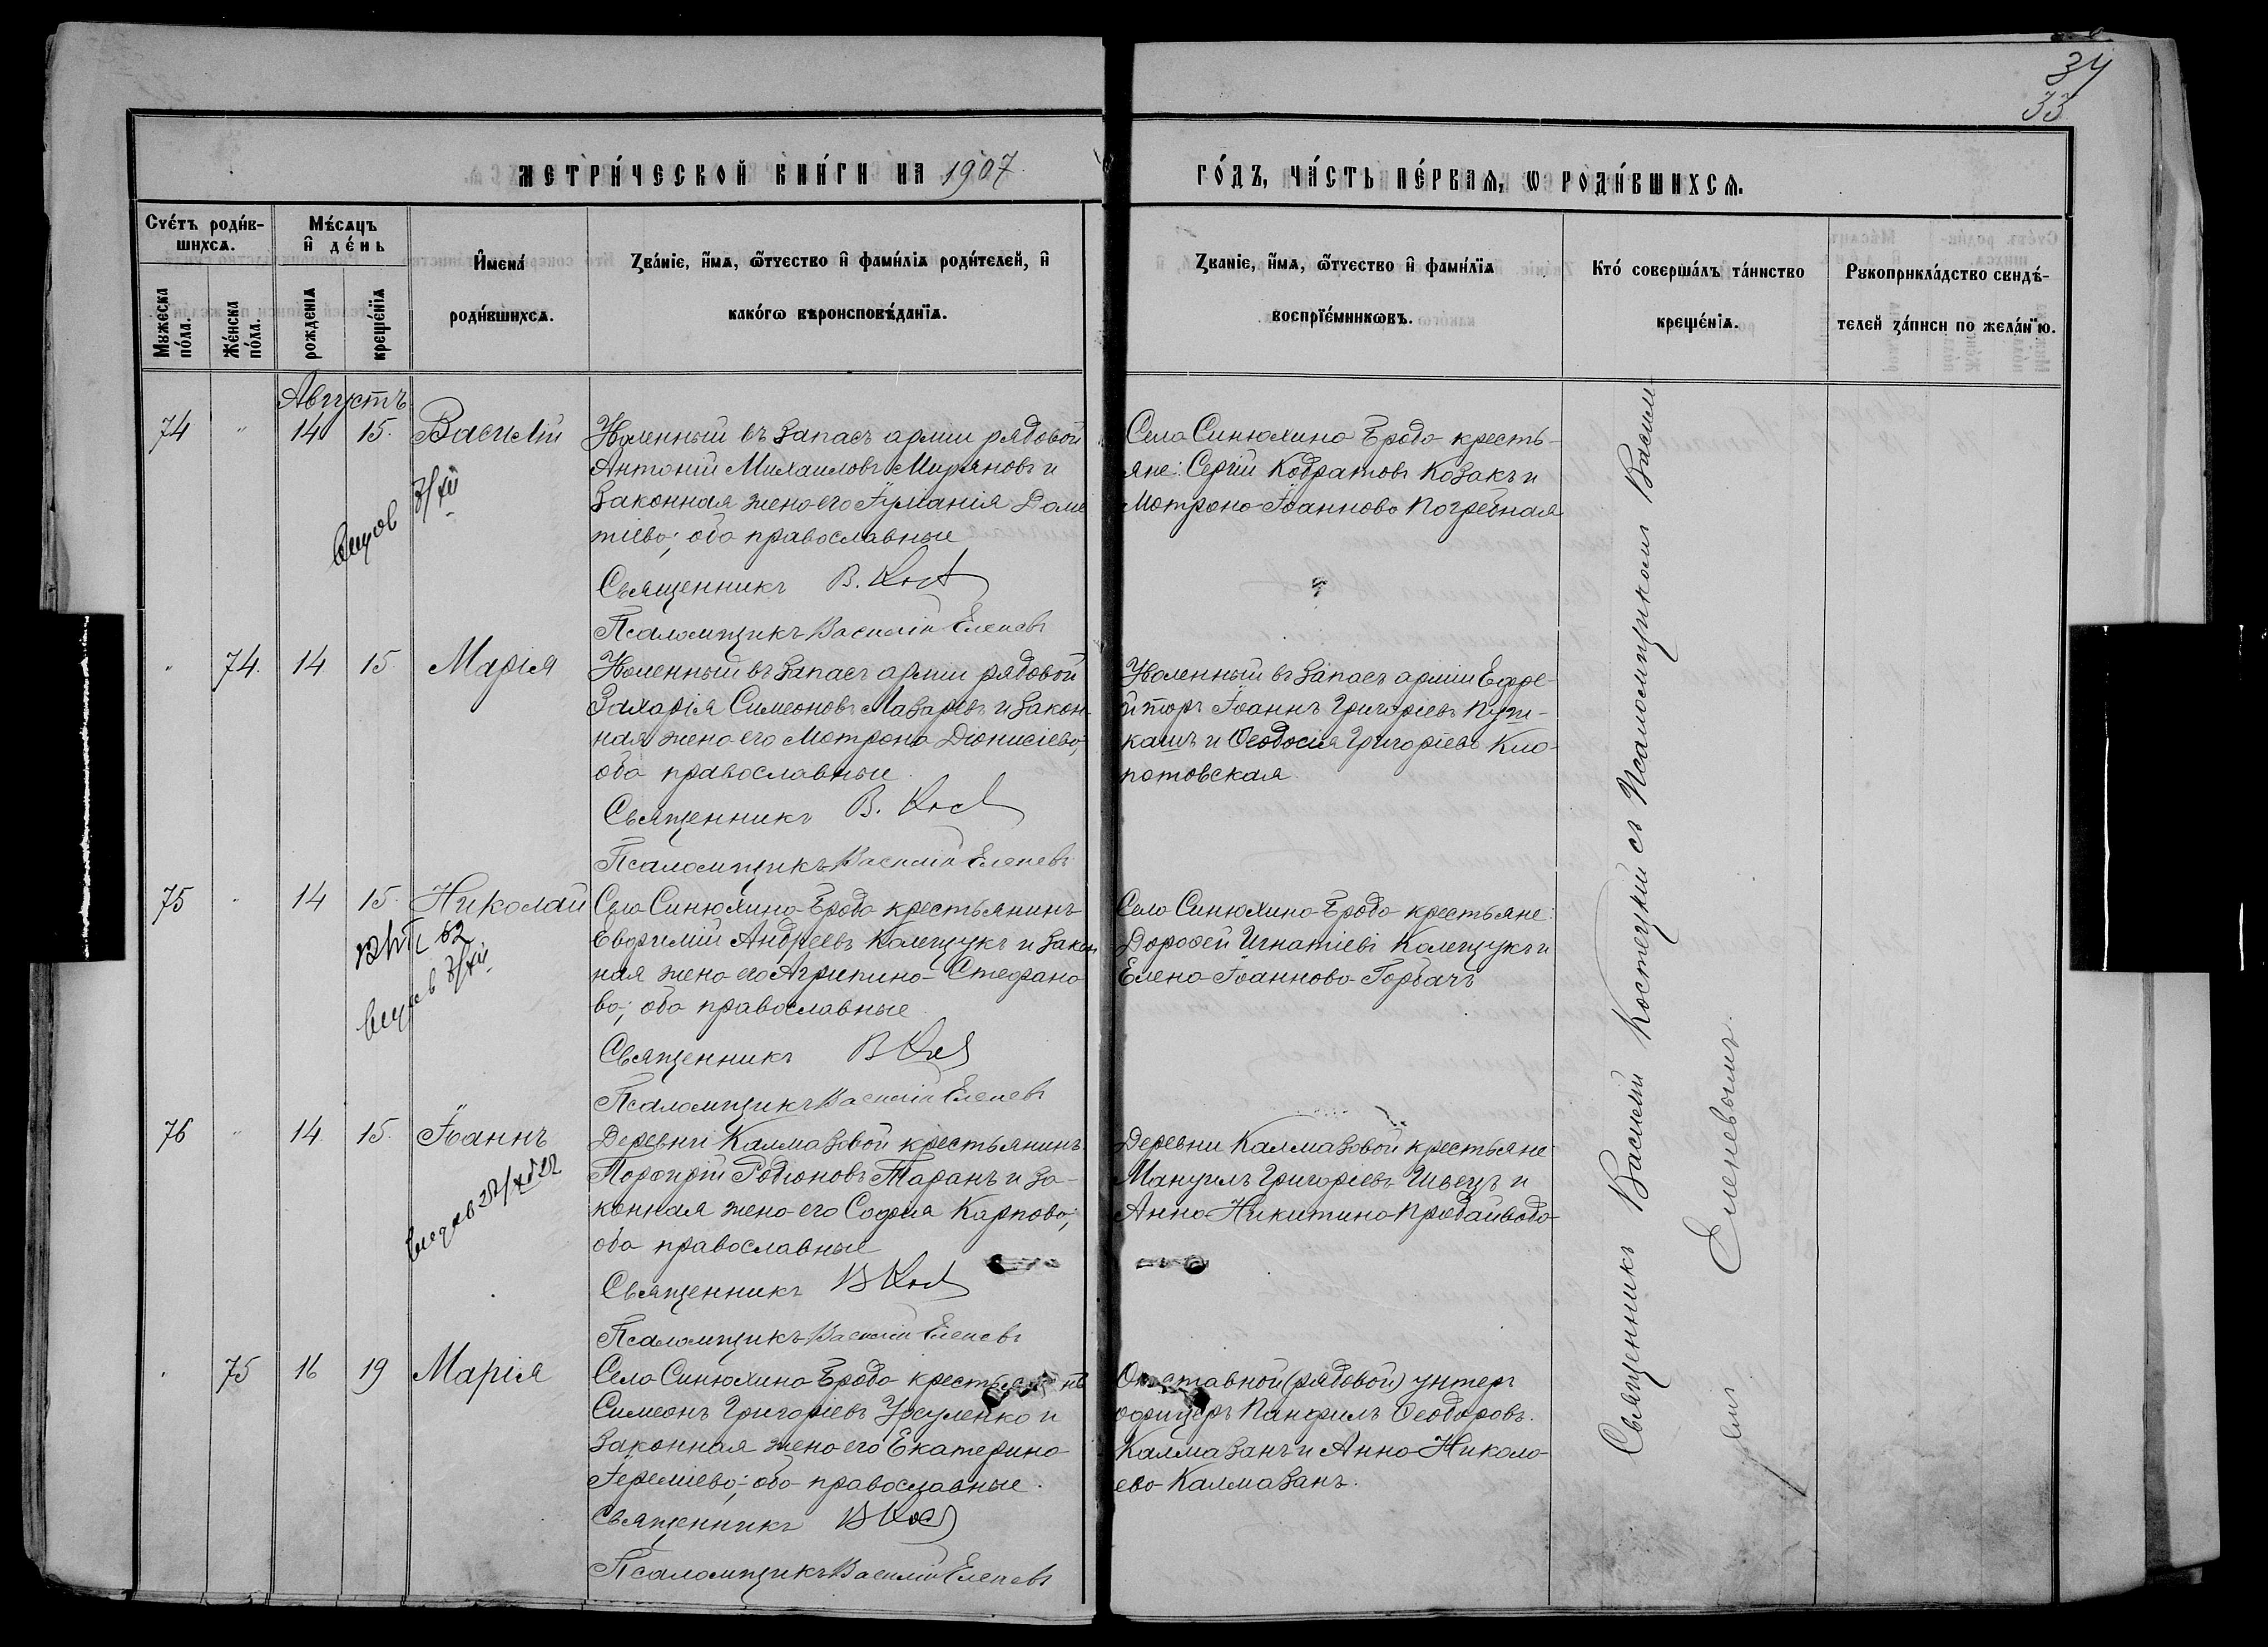 34
33
МЕТРИ́ЧЕСКОЙ КНИ́ГИ НА 1907
ГО́ДЪ, ЧА́СТЬ ПЕ́РВАѦ, Ѡ РОДИ́ВШИХСѦ.
Счéтъ роди́в-
шихсѧ.
Мѣ́сѧцъ
и҆ де́нь
И҆мена́
роди́вшихсѧ.
Зва́ніе, и҆́мѧ, ѻ҆́тчество и҆ фами́лїѧ роди́телей, и҆
како́гѡ вѣроисповѣ́данїѧ.
Званіе, и҆́мѧ, ѻ҆́тчество и҆ фами́лїѧ
воспріе́мниковъ.
Кто́ соверша́лъ та́инство
креще́нїѧ.
Рꙋкоприкла́дство свидѣ́-
телей за́писи по жела́нїю.
Мꙋжеска
по́ла.
Же́нска
по́ла.
рожденїѧ
креще́нїѧ
Августъ
74 " 14 15. Василій
Уволенный въ запасъ арміи рядовой
Антоній Михаиловъ Мирановъ и
законная жена его Іуліанія Доме
тіева; оба православные
Священникъ В. Кост
Псаломщикъ Василій Еленевъ
Села Синюхина Брода кресть-
яне: Сергій Кодратовъ Козакъ и
Мотрона Іоаннова Погребная
" 74. 14 15. Марія
Уволенный въ запасъ арміи рядовой
Захарія Симеоновъ Лазаревъ и закон-
ная жена его Мотрона Діонисіева;
оба православные.
Священникъ В. Кост
Псаломщикъ Василій Еленевъ
Уволенный въ запасъ арміи Ефре-
йторъ Іоаннъ Григоріевъ Пуш-
кашъ и Ѳеодосія Григоріева Кло-
потовская.
75 " 14 15. Николай
Села Синюхина Брода крестьянинъ
Евфимій Андреевъ Колещукъ и закон
ная жена его Агрипина Стефано
ва; оба православные
Священникъ В Кост
Псаломщикъ Василій Еленевъ
Села Синюхина Брода крестьяне:
Дорофей Игнатіевъ Колещукъ и
Елена Іоаннова Горбачъ
76 " 14. 15. Іоаннъ
Деревни Калмазовой крестьянинъ
Порфирій Родіоновъ Таранъ и за-
конная жена его Софія Карпова;
оба православные
Священникъ В Кост
Псаломщикъ Василій Еленевъ
Деревни Калмазовой крестьяне
Мануилъ Григоріевъ Швецъ и
Анна Никитина Продайвода
" 75 16 19 Марія
Села Синюхина Брода крестьянинъ
Симеонъ Григоріевъ Усуленко и
законная жена его Екатерина
Іереміева; оба православные.
Священникъ В Кост
Псаломщикъ Василій Еленевъ
Отставной (рядовой) унтеръ
офицеръ Панфилъ Ѳеодоровъ
Калмазанъ и Анна Никола-
ева Калмазанъ.
Священникъ Василій Костецкій съ Псаломщикомъ Васи
емъ Еленевымъ.